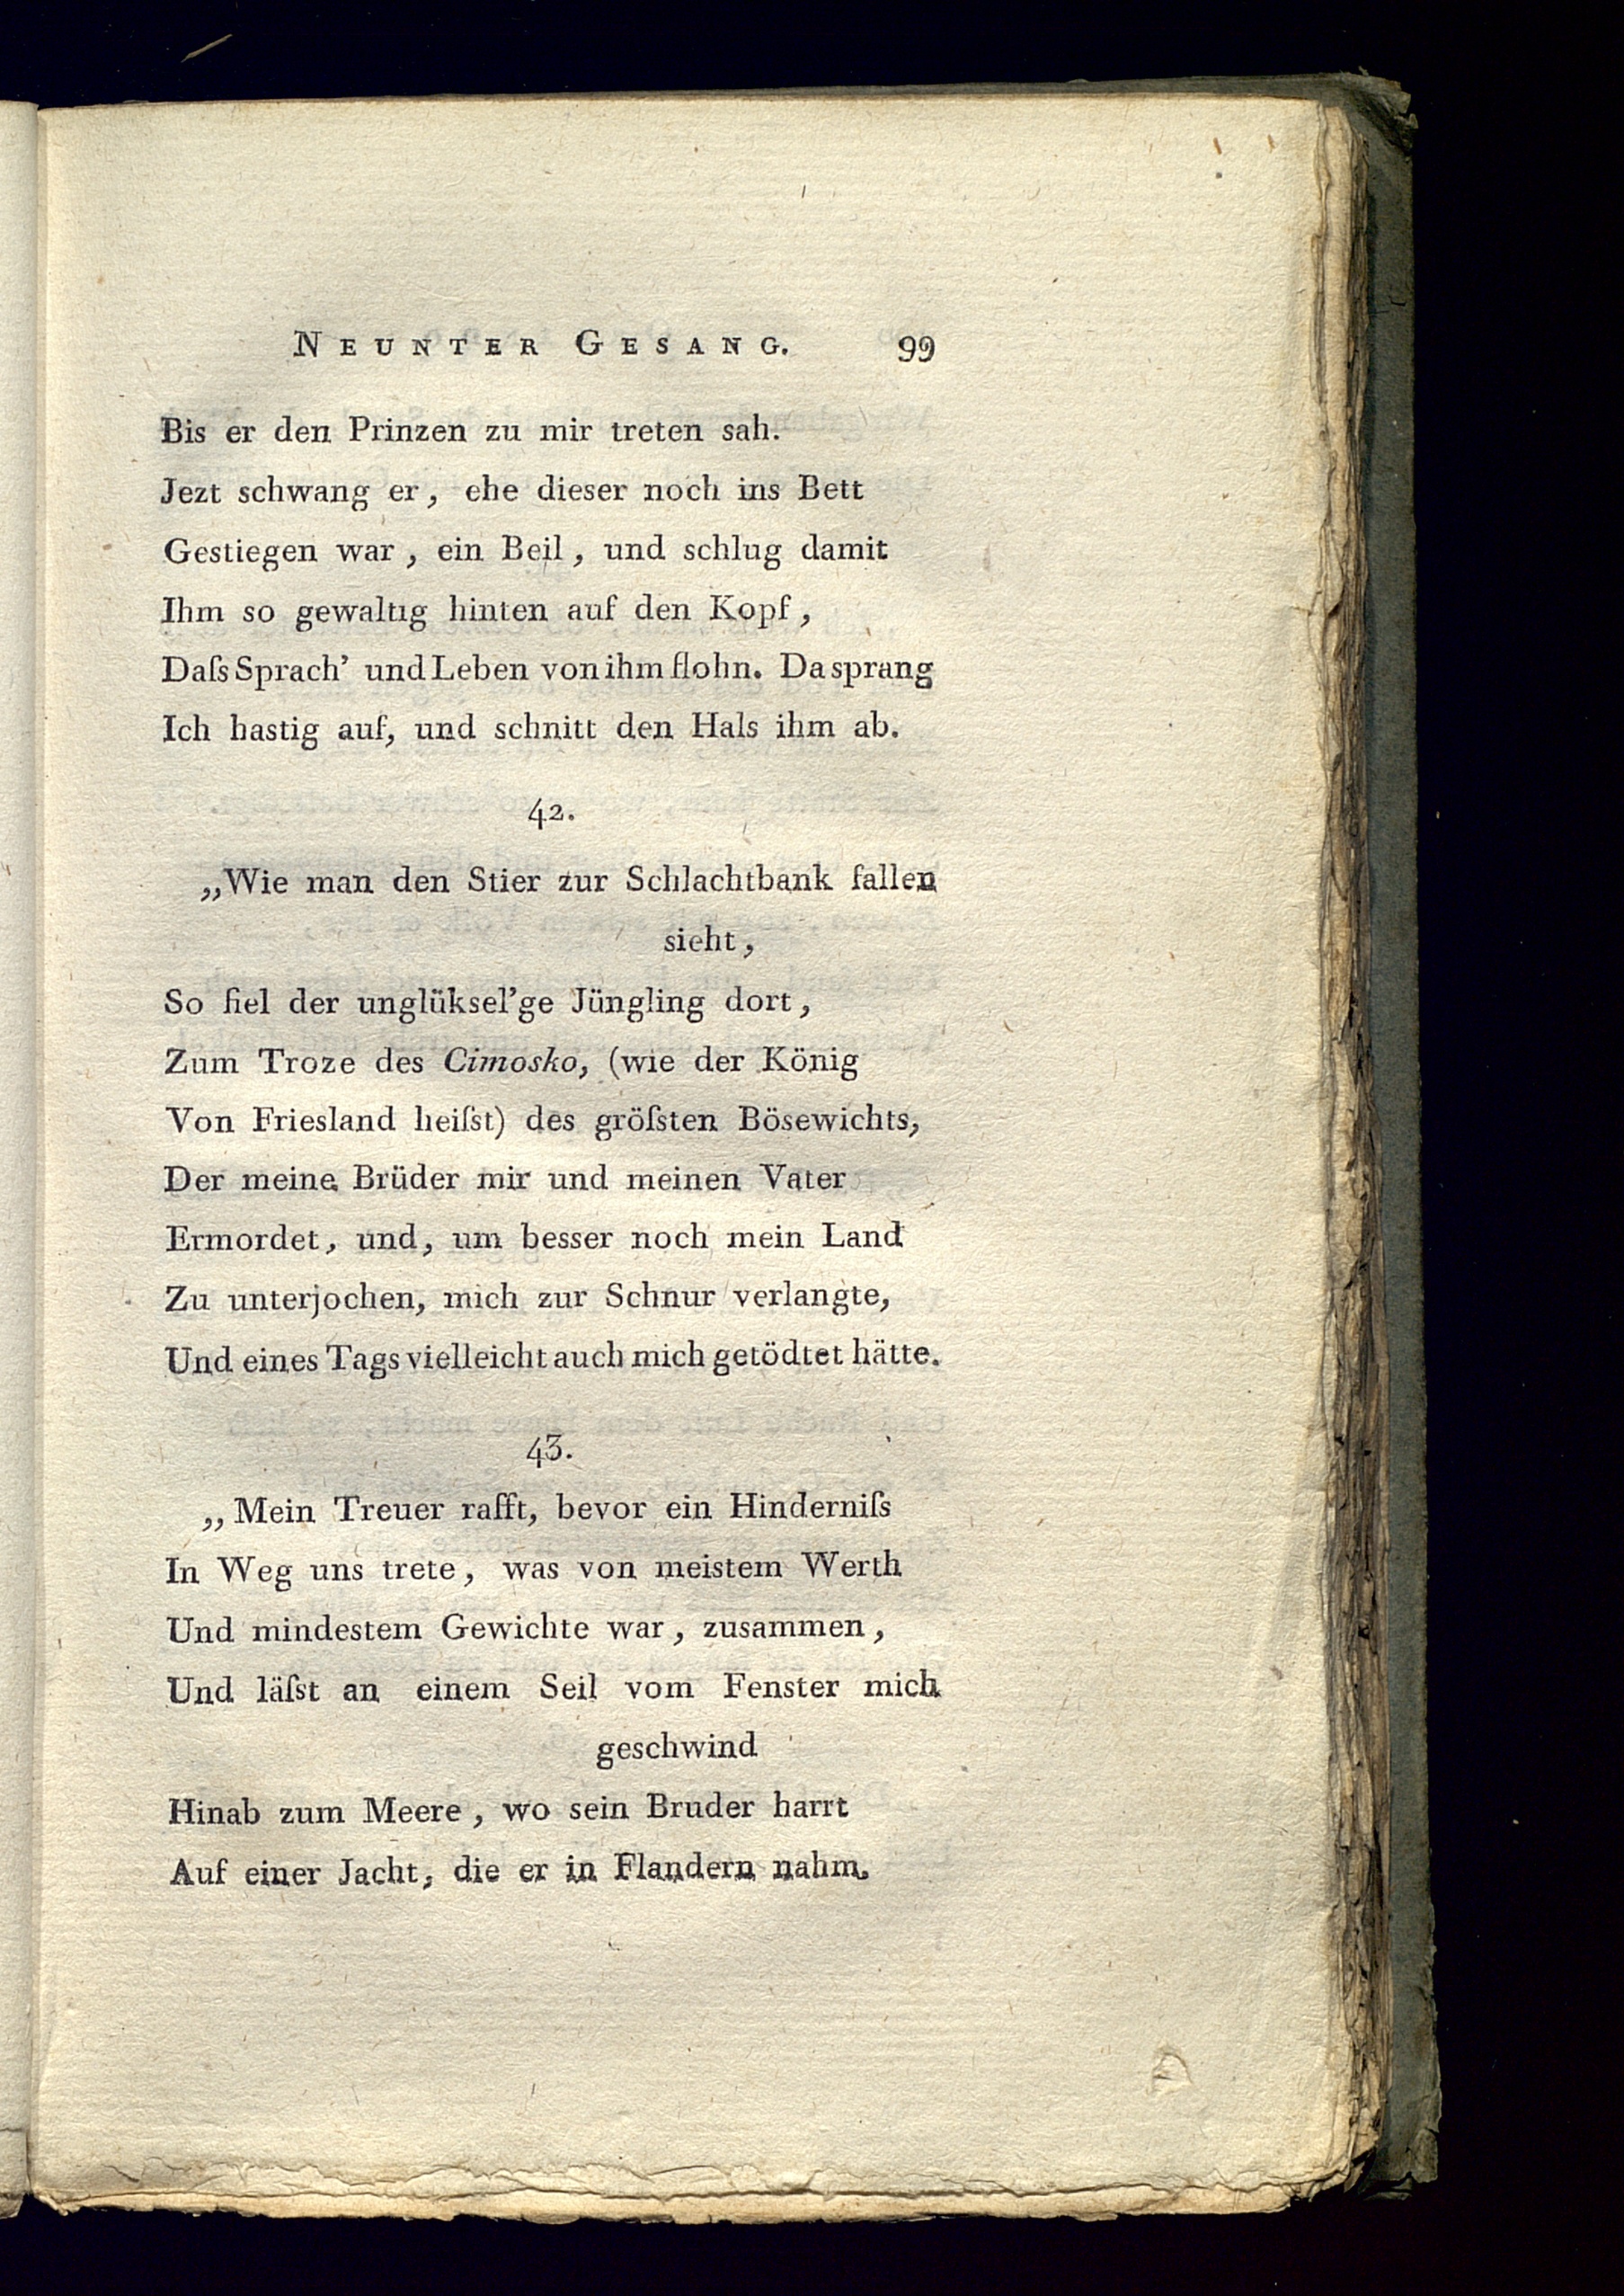 NEUNTER GESANG. 99
Bis er den Prinzen zu mir treten sah.
Jezt schwang er, ehe dieser noch ins Bett
Gestiegen war, ein Beil, und schlug damit
Ihm so gewaltig hinten auf den Kopf,
Daſs Sprach' und Leben von ihm flohn. Da sprang
Ich hastig auf, und schnitt den Hals ihm ab.
42.
„Wie man den Stier zur Schlachtbank fallen
sieht,
So fiel der unglüksel'ge Jüngling dort,
Zum Troze des Cimosko, (wie der König
Von Friesland heiſst) des gröſsten Bösewichts,
Der meine Brüder mir und meinen Vater
Ermordet, und, um besser noch mein Land
Zu unterjochen, mich zur Schnur verlangte,
Und eines Tags vielleicht auch mich getödtet hätte.
43.
„Mein Treuer rafft, bevor ein Hinderniſs
In Weg uns trete, was von meistem Werth
Und mindestem Gewichte war, zusammen,
Und läſst an einem Seil vom Fenster mich
geschwind
Hinab zum Meere, wo sein Bruder harrt
Auf einer Jacht, die er in Flandern nahm.